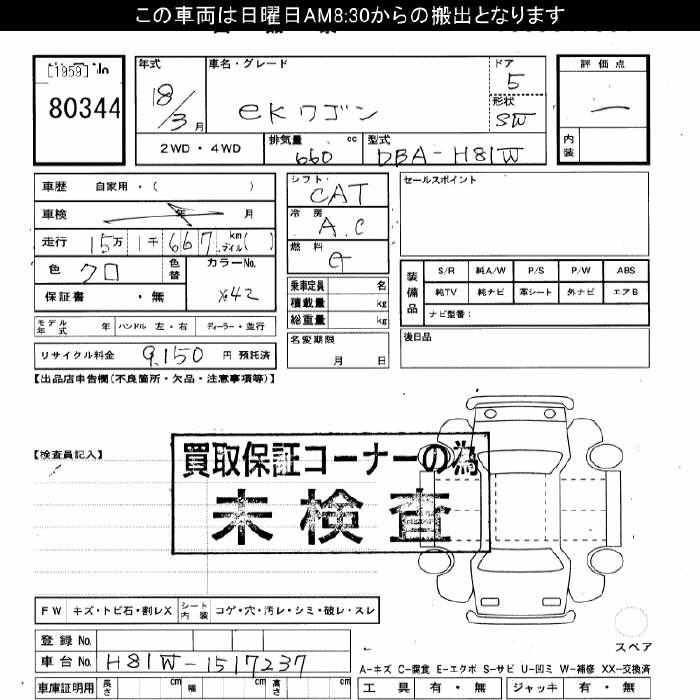 この車両は日曜日AM8:30からの搬出となります
[1959] No
80344
年式
18/3月
車名・グレード
eKワゴン
ドア
5
形状
SW
評価点
—
内装
2WD・4WD
排気量 cc
660
型式
DBA-H81W
車歴 自家用・( )
車検 年 月
走行 15万 1千 667 km マイル( )
色 クロ
色替
カラーNo.
X42
保証書 ・無
モデル年式 年 ハンドル 左・右 ディーラー・並行
リサイクル料金 9,150 円 預託済
シフト
CAT
冷房
A.C
燃料
G
乗車定員 名
積載量 kg
総重量 kg
名変期限
月 日
セールスポイント
装備品
S/R 純A/W P/S P/W ABS
純TV 純ナビ 革シート 外ナビ エアB
ナビ型番:
後日品
【出品店申告欄(不良箇所・欠品・注意事項等)】
【検査員記入】
買取保証コーナーの為
未検査
FW キズ・トビ石・割レX
シート内装 コゲ・穴・汚レ・シミ・破レ・スレ
登録No.
車台No. H81W-1517237
車庫証明用 長さ cm 幅 cm 高さ cm
スペア
A-キズ C-腐食 E-エクボ S-サビ U-凹ミ W-補修 XX-交換済
工具 有・無 ジャッキ 有・無